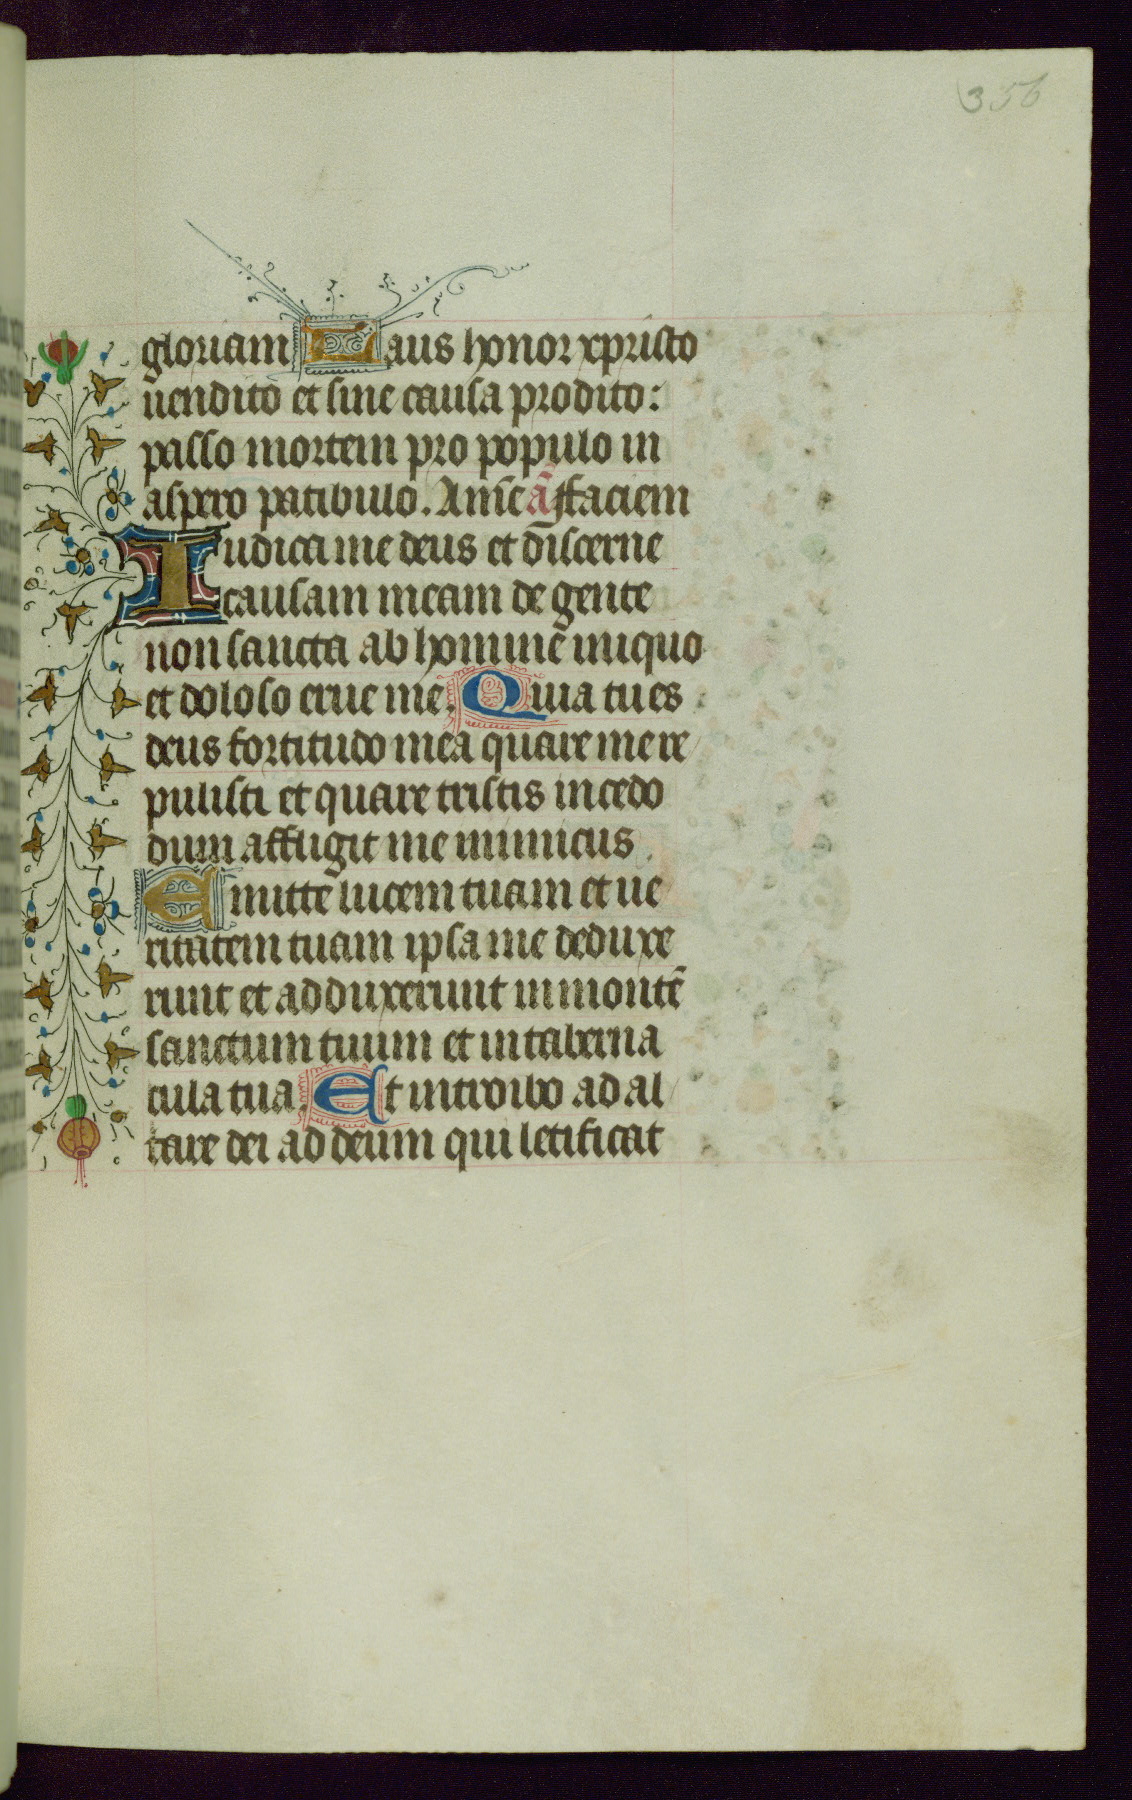 356
gloriam Laus honor xpristo
uendito et sine causa prodito:
passo mortem pro populo in
aspero patibulo. Am̄e an̄ Faciem
Iudica me deus et discerne
causam meam de gente
non sancta ab homine iniquo
et doloso erue me. Quia tu es
deus fortitudo mea quare me re
pulisti et quare tristis incedo
dum affligit me inimicus
Emitte lucem tuam et ue
ritatem tuam ipsa me deduxe
runt et adduxerunt in montē
sanctum tuum et in taberna
cula tua. Et introibo ad al
tare dei ad deum qui letificat